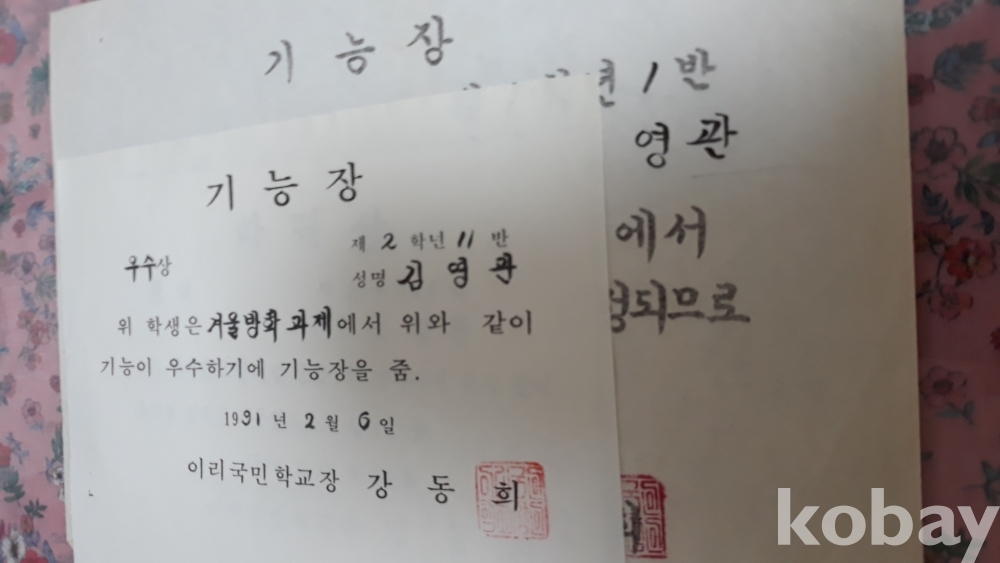 기능장
년 1 반
영관
에서
되므로
기능장
제 2 학년 11 반
우수상
성명 김영관
위 학생은 겨울방학과제에서 위와 같이
기능이 우수하기에 기능장을 줌.
1991 년 2 월 6 일
이리국민학교장 강동희
kobay